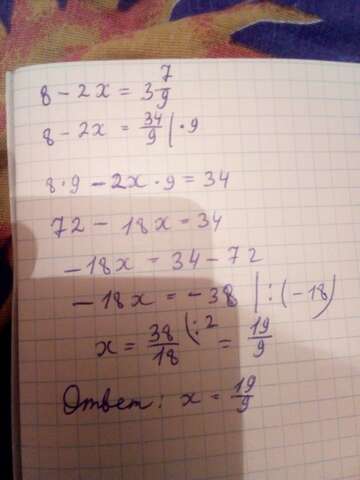 8 - 2x = 3 7/9
8 - 2x = 34/9 | · 9
8 · 9 - 2x · 9 = 34
72 - 18x = 34
-18x = 34 - 72
-18x = -38 | : (-18)
x = 38/18 (: 2 = 19/9
Ответ: x = 19/9